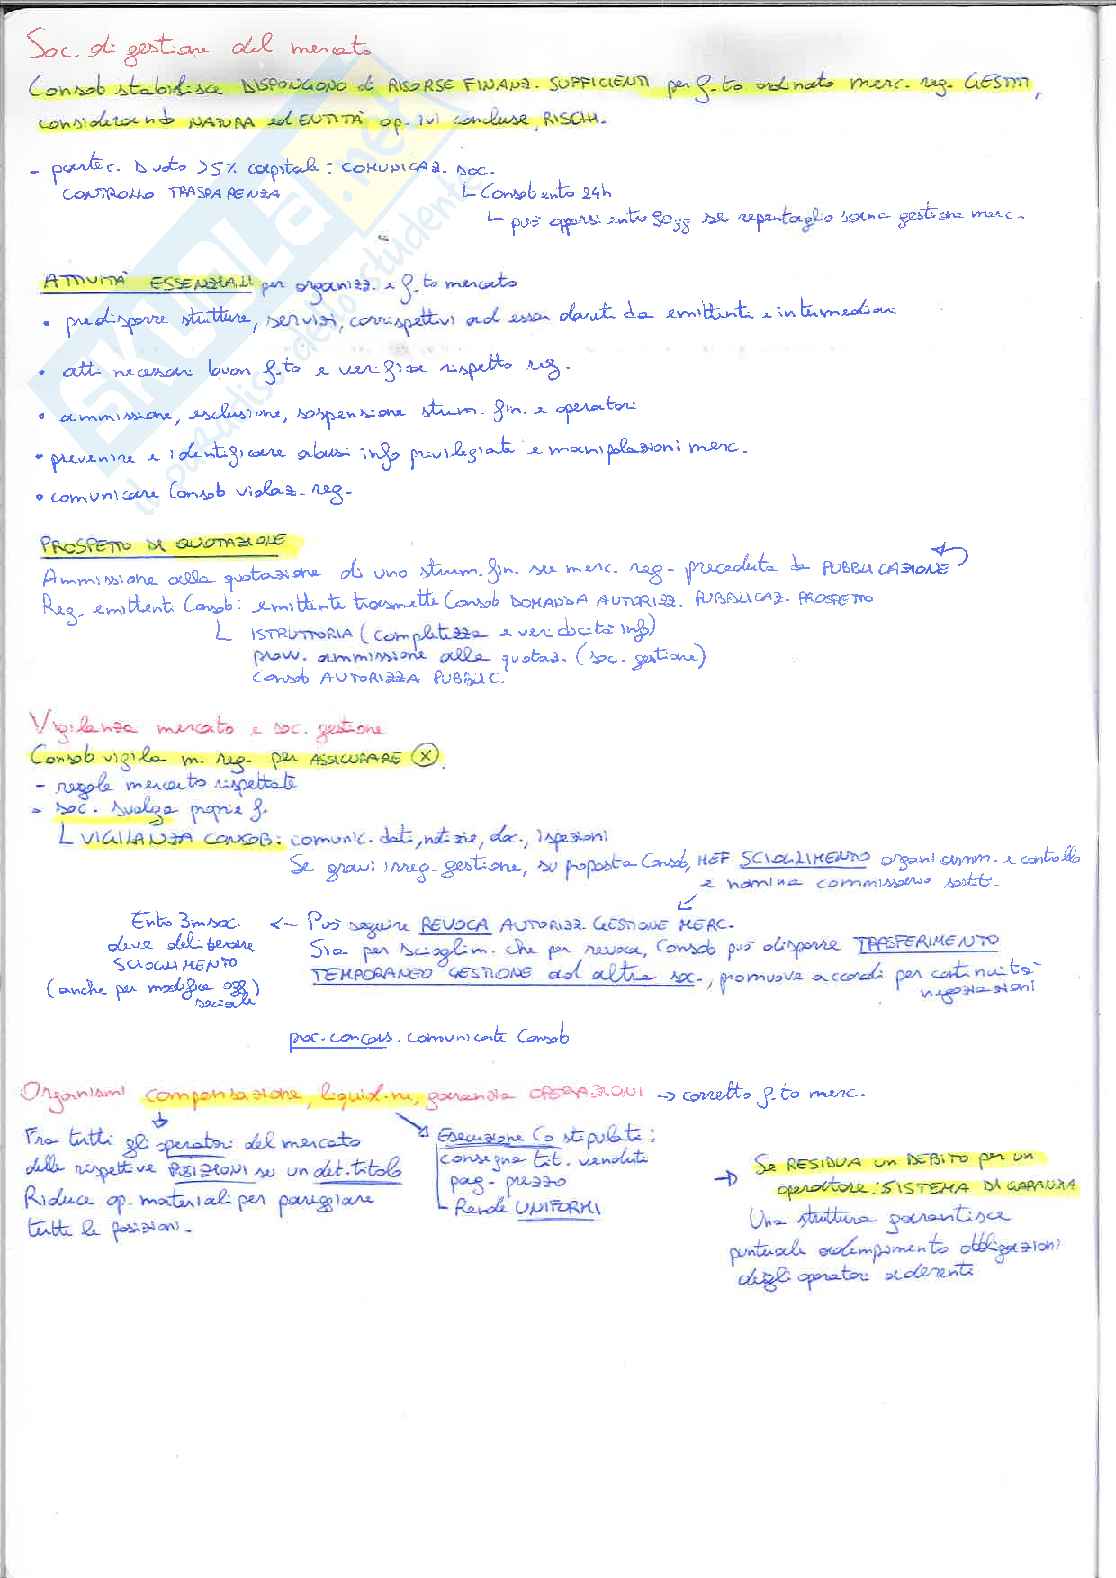 Soc. di gestione del mercato
Consob stabilisce DISPONGONO di RISORSE FINANZ. SUFFICIENTI per f.to ordinato merc. reg. GESTITI,
considerando NATURA ed ENTITÀ op. ivi concluse, RISCHI.
- partec. D voto >5% capitale: COMUNICAZ. soc.
CONTROLLO TRASPARENZA
└ Consob ento 24h
└ può opporsi entro 90gg se repentaglio sana gestione merc.
ATTIVITÀ ESSENZIALI per organizz. e f.to mercato
• predisporre strutture, servizi, corrispettivi ad essa dovuti da emittenti e intermediari
• atti necessari buon f.to e verifica rispetto reg.
• ammissione, esclusione, sospensione strum. fin. e operatori
• prevenire e identificare abusi info privilegiate e manipolazioni merc.
• comunicare Consob violaz. reg.
PROSPETTO DI QUOTAZIONE
Ammissione alla quotazione di uno strum. fin. su merc. reg. preceduta da PUBBLICAZIONE
Reg. emittenti Consob: emittente trasmette Consob DOMANDA AUTORIZZ. PUBBLICAZ. PROSPETTO
└ ISTRUTTORIA (completezza e veridicità info)
provv. ammissione alla quotaz. (soc. gestione)
Consob AUTORIZZA PUBBLIC.
Vigilanza mercato e soc. gestione
Consob vigila m. reg. per ASSICURARE ⊗
- regole mercato rispettate
- soc. svolga proprie f.
└ VIGILANZA CONSOB: comunic. dati, notizie, doc., ispezioni
Se gravi irreg. gestione, su proposta Consob, MEF SCIOGLIMENTO organi amm. e controllo
e nomina commissario sostit.
Ento 3m soc. <- Può seguire REVOCA AUTORIZZ. GESTIONE MERC.
deve deliberare Sia per scioglim. che per revoca, Consob può disporre TRASFERIMENTO
SCIOGLIMENTO TEMPORANEO GESTIONE ad altre soc., promuove accordi per continuità
(anche per modifica ogg. negoziazioni
sociale)
proc. concors. comunicate Consob
Organismi compensazione, liquid.ne, garanzia OPERAZIONI -> corretto f.to merc.
Fra tutti gli operatori del mercato
delle rispettive POSIZIONI su un det. titolo
Riduce op. materiali per pareggiare
tutte le posizioni.
Esecuzione Co stipulate:
consegna tit. vendute
pag. prezzo
└ Rende UNIFORMI
-> Se RESIDUA UN DEBITO per un
operatore: SISTEMA DI GARANZIA
Una struttura garantisce
puntuale adempimento obbligazioni
degli operatori aderenti
SKUOLA.net
il paradiso dello studente